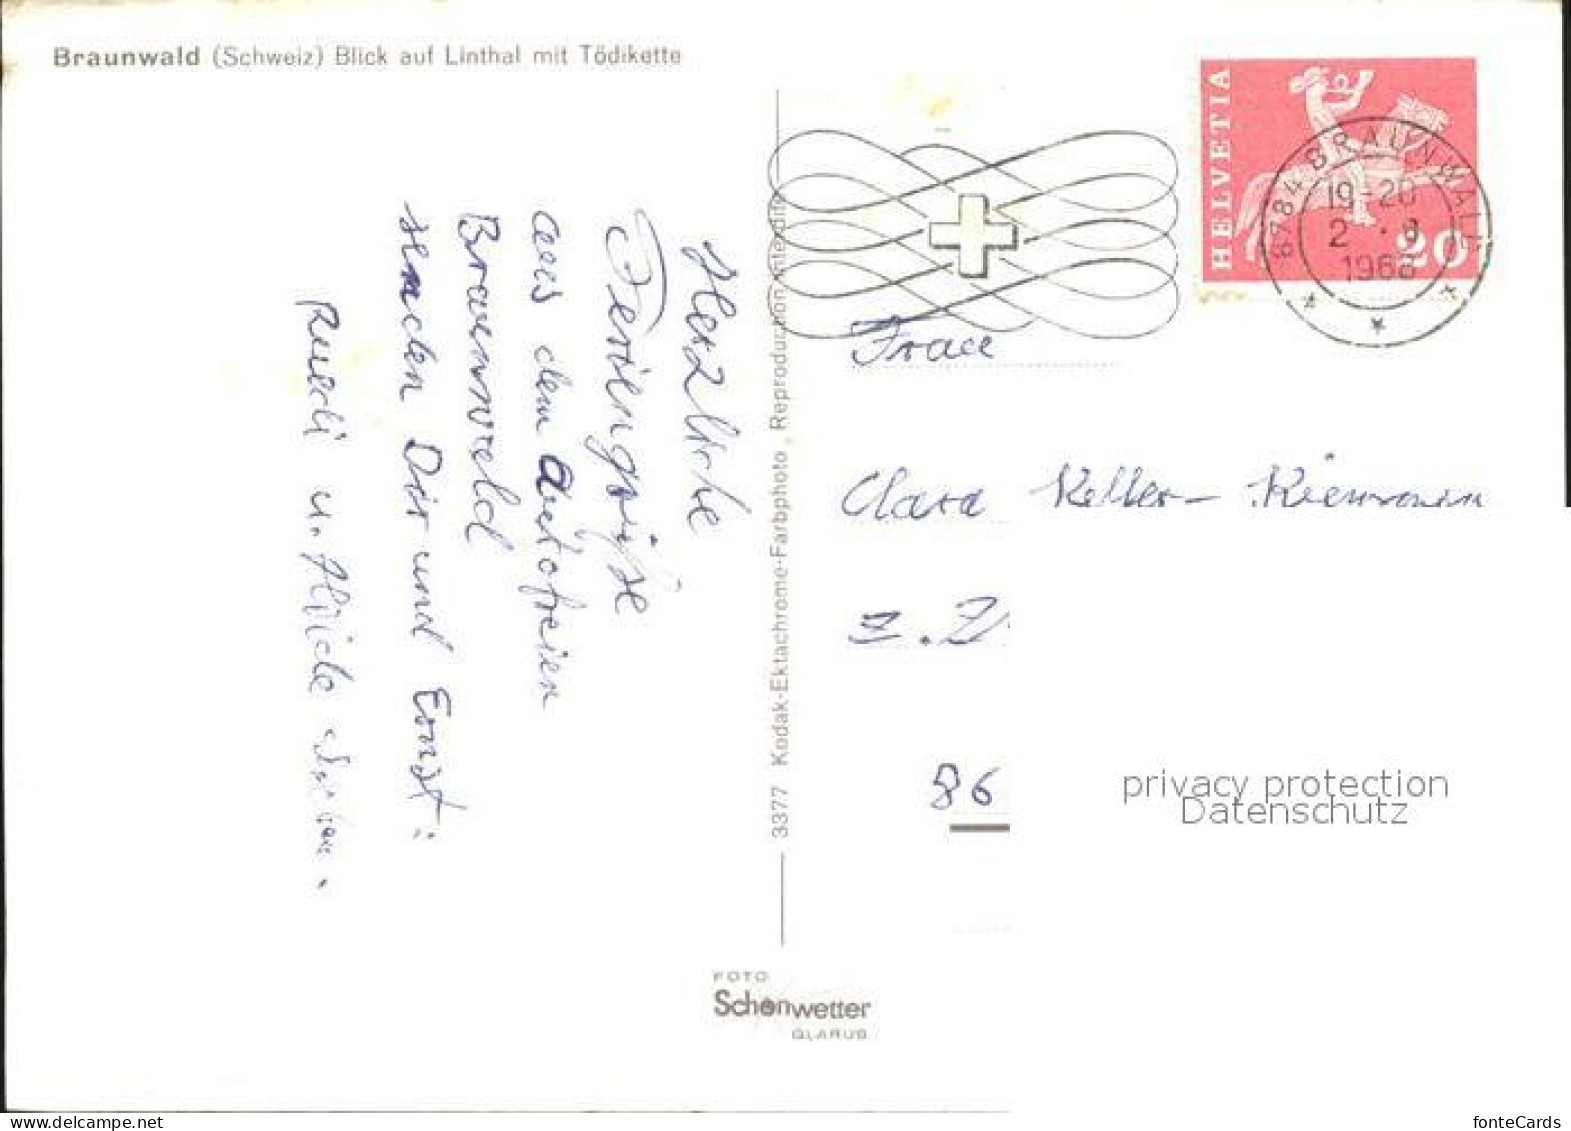 Braunwald (Schweiz) Blick auf Linthal mit Tödikette
HELVETIA
20
8784 BRAUNWALD
19-20
2.8
1968
Herzliche
Feriengrüsse
aus dem Autofreien
Braunwald
senden Dir und Ernst:
Ruedi u.
Frau
Clara Keller-
z.Z
86
3377 Kodak-Ektachrome-Farbphoto Reproduction interdite
FOTO
Schönwetter
GLARUS
privacy protection
Datenschutz
www.delcampe.net
fonteCards